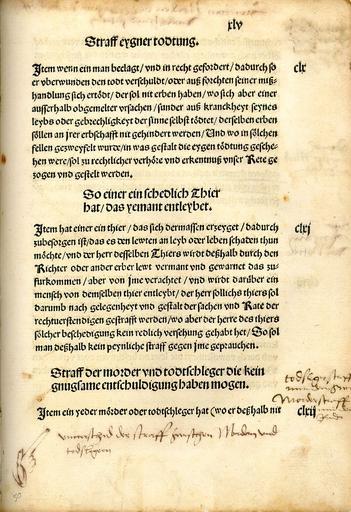 xlv
Straff eygner todtung.
Item wenn ein man beclagt/ vnd in recht gefordert/ dadurch so
er vberwunden den todt verschuldt/ oder auß forchten seiner miß-
handlung sich ertödt/ der sol nit erben haben/ wo sich aber einer
ausserhalb obgemelter vrsachen/ sunder auß kranckheyt seynes
leybs oder gebrechligkeyt der sinne selbst tödtet/ derselben erben
söllen an jrer erbschafft nit gehindert werden/ Vnd wo in sölchen
fellen gezweyfelt wurde/ in was gestalt die eygen tödtung gesche-
hen were/ sol zu rechtlicher verhöre vnd erkentnuß vnser Rete ge
zogen vnd gestelt werden.
clx
So einer ein schedlich Thier
hat/ das yemant entleybet.
Item hat einer ein thier/ das sich dermassen erzeyget/ dadurch
zubesorgen ist/ das es den lewten an leyb oder leben schaden thun
möchte/ vnd der herr desselben Thiers wirdt deßhalb durch den
Richter oder ander erber lewt vermant vnd gewarnet das zu-
furkommen/ aber von jme verachtet/ vnd wirdt darüber ein
mensch von demselben thier entleybt/ der herr söllichs thiers sol
darumb nach gelegenheyt vnd gestalt der sachen vnd Rate der
rechtuerstendigen gestrafft werden/ wo aber der herre des thiers
sölcher beschedigung kein redlich versehung gehabt het/ So sol
man deßhalb kein peynliche straff gegen jme gebrauchen.
clxj
Straff der morder vnd todtschleger die kein
gnugsame entschuldigung haben mogen.
Item ein yeder mörder oder todtschleger hat (wo er deßhalb nit
clxij